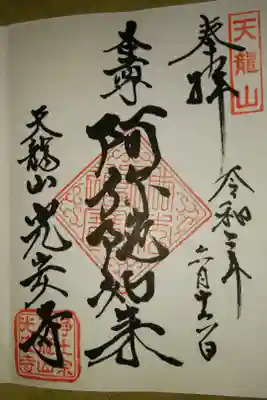 天龍山
奉拝
令和二年
六月十六日
本尊
阿弥陀如来
天龍山 光安寺